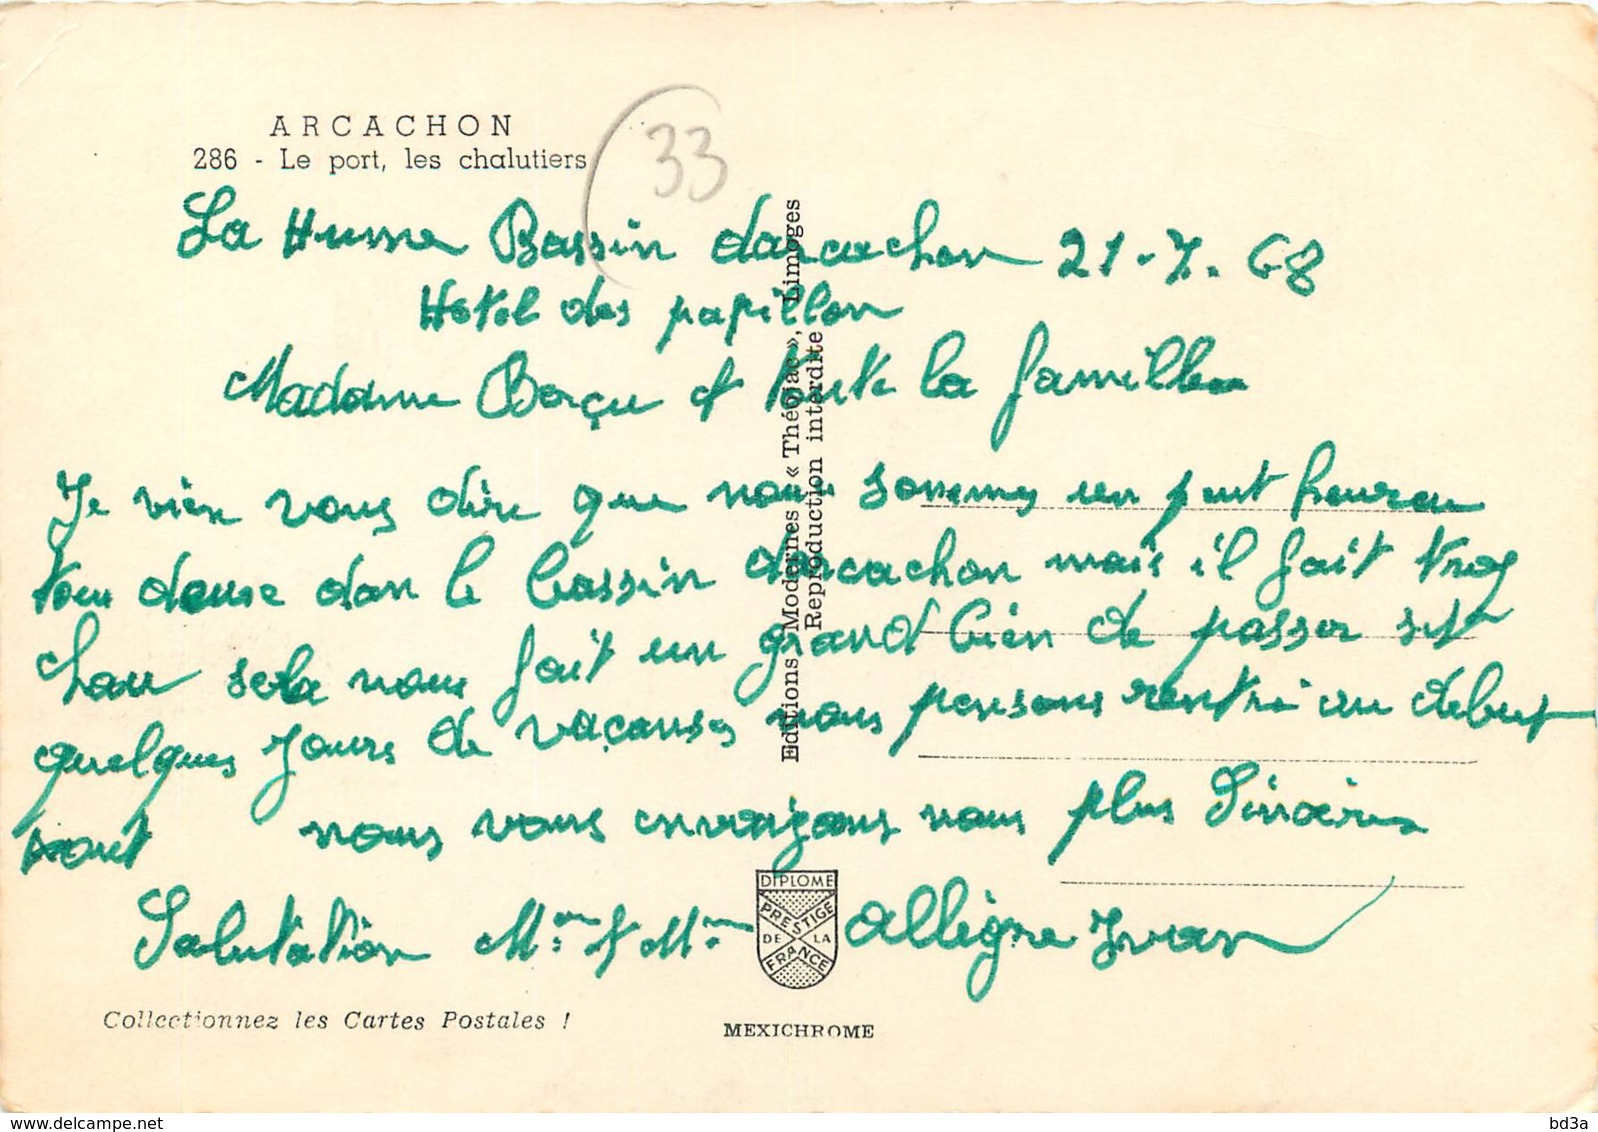 ARCACHON
286 - Le port, les chalutiers
33
La Hume Bassin darcachon 21-7-68
Hotel des papillon
Madame Borçu et toute la famille
Je vien vous dire que nous sommes un peut heureu
tou deuse dan le bassin darcachon mais il fait trop
chau sela nous fait un grand bien de passer set
quelques jours de vacanses nous pensons rentri au debut
aout nous vous envoyons nous plus Sinceires
Salutation Mr et Mme allègne Yvan
Editions Modernes « Théojac », Limoges
Reproduction interdite
DIPLOME
PRESTIGE
DE LA
FRANCE
Collectionnez les Cartes Postales !
MEXICHROME
delcampe.net
bd3a